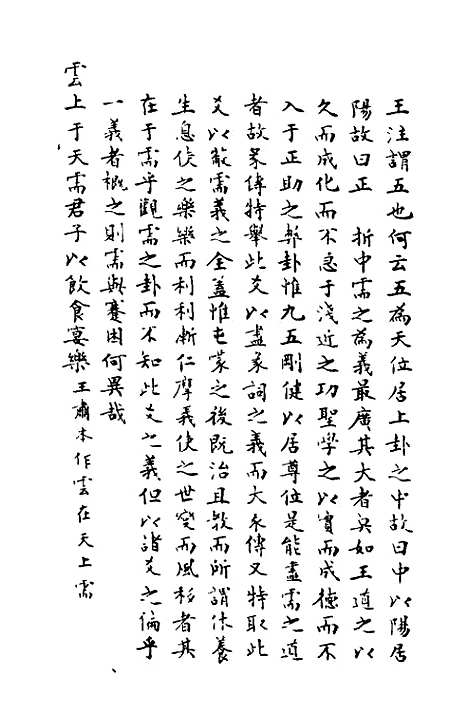 王注謂五也何云五為天位居上卦之中故曰中以陽居
陽故曰正　折中需之為義最廣其大者矣如王道之以
久而成化而不急于淺近之功聖學之以實而成德而不
入于正助之弊卦惟九五剛健以居尊位是能盡需之道
者故彖傳特舉此爻以盡彖詞之義而大象傳又特取此
爻以蔽需義之全蓋惟屯蒙之後既治且教而所謂休養
生息俟之樂樂而利利漸仁摩義使之世變而風移者其
在于需乎觀需之卦而不知此爻之義但以諸爻之偏乎
一義者概之則需與蹇困何異哉
雲上于天需君子以飲食宴樂王肅本作雲在天上需